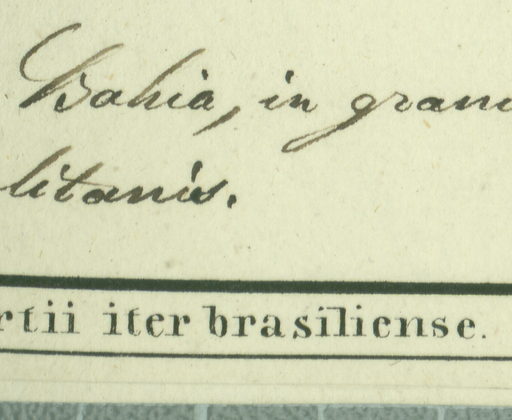 Bahia, in gram
litanis.
rtii iter brasiliense.